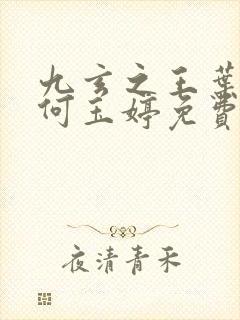 九玄之王葉
何玉婷免費
夜清青禾